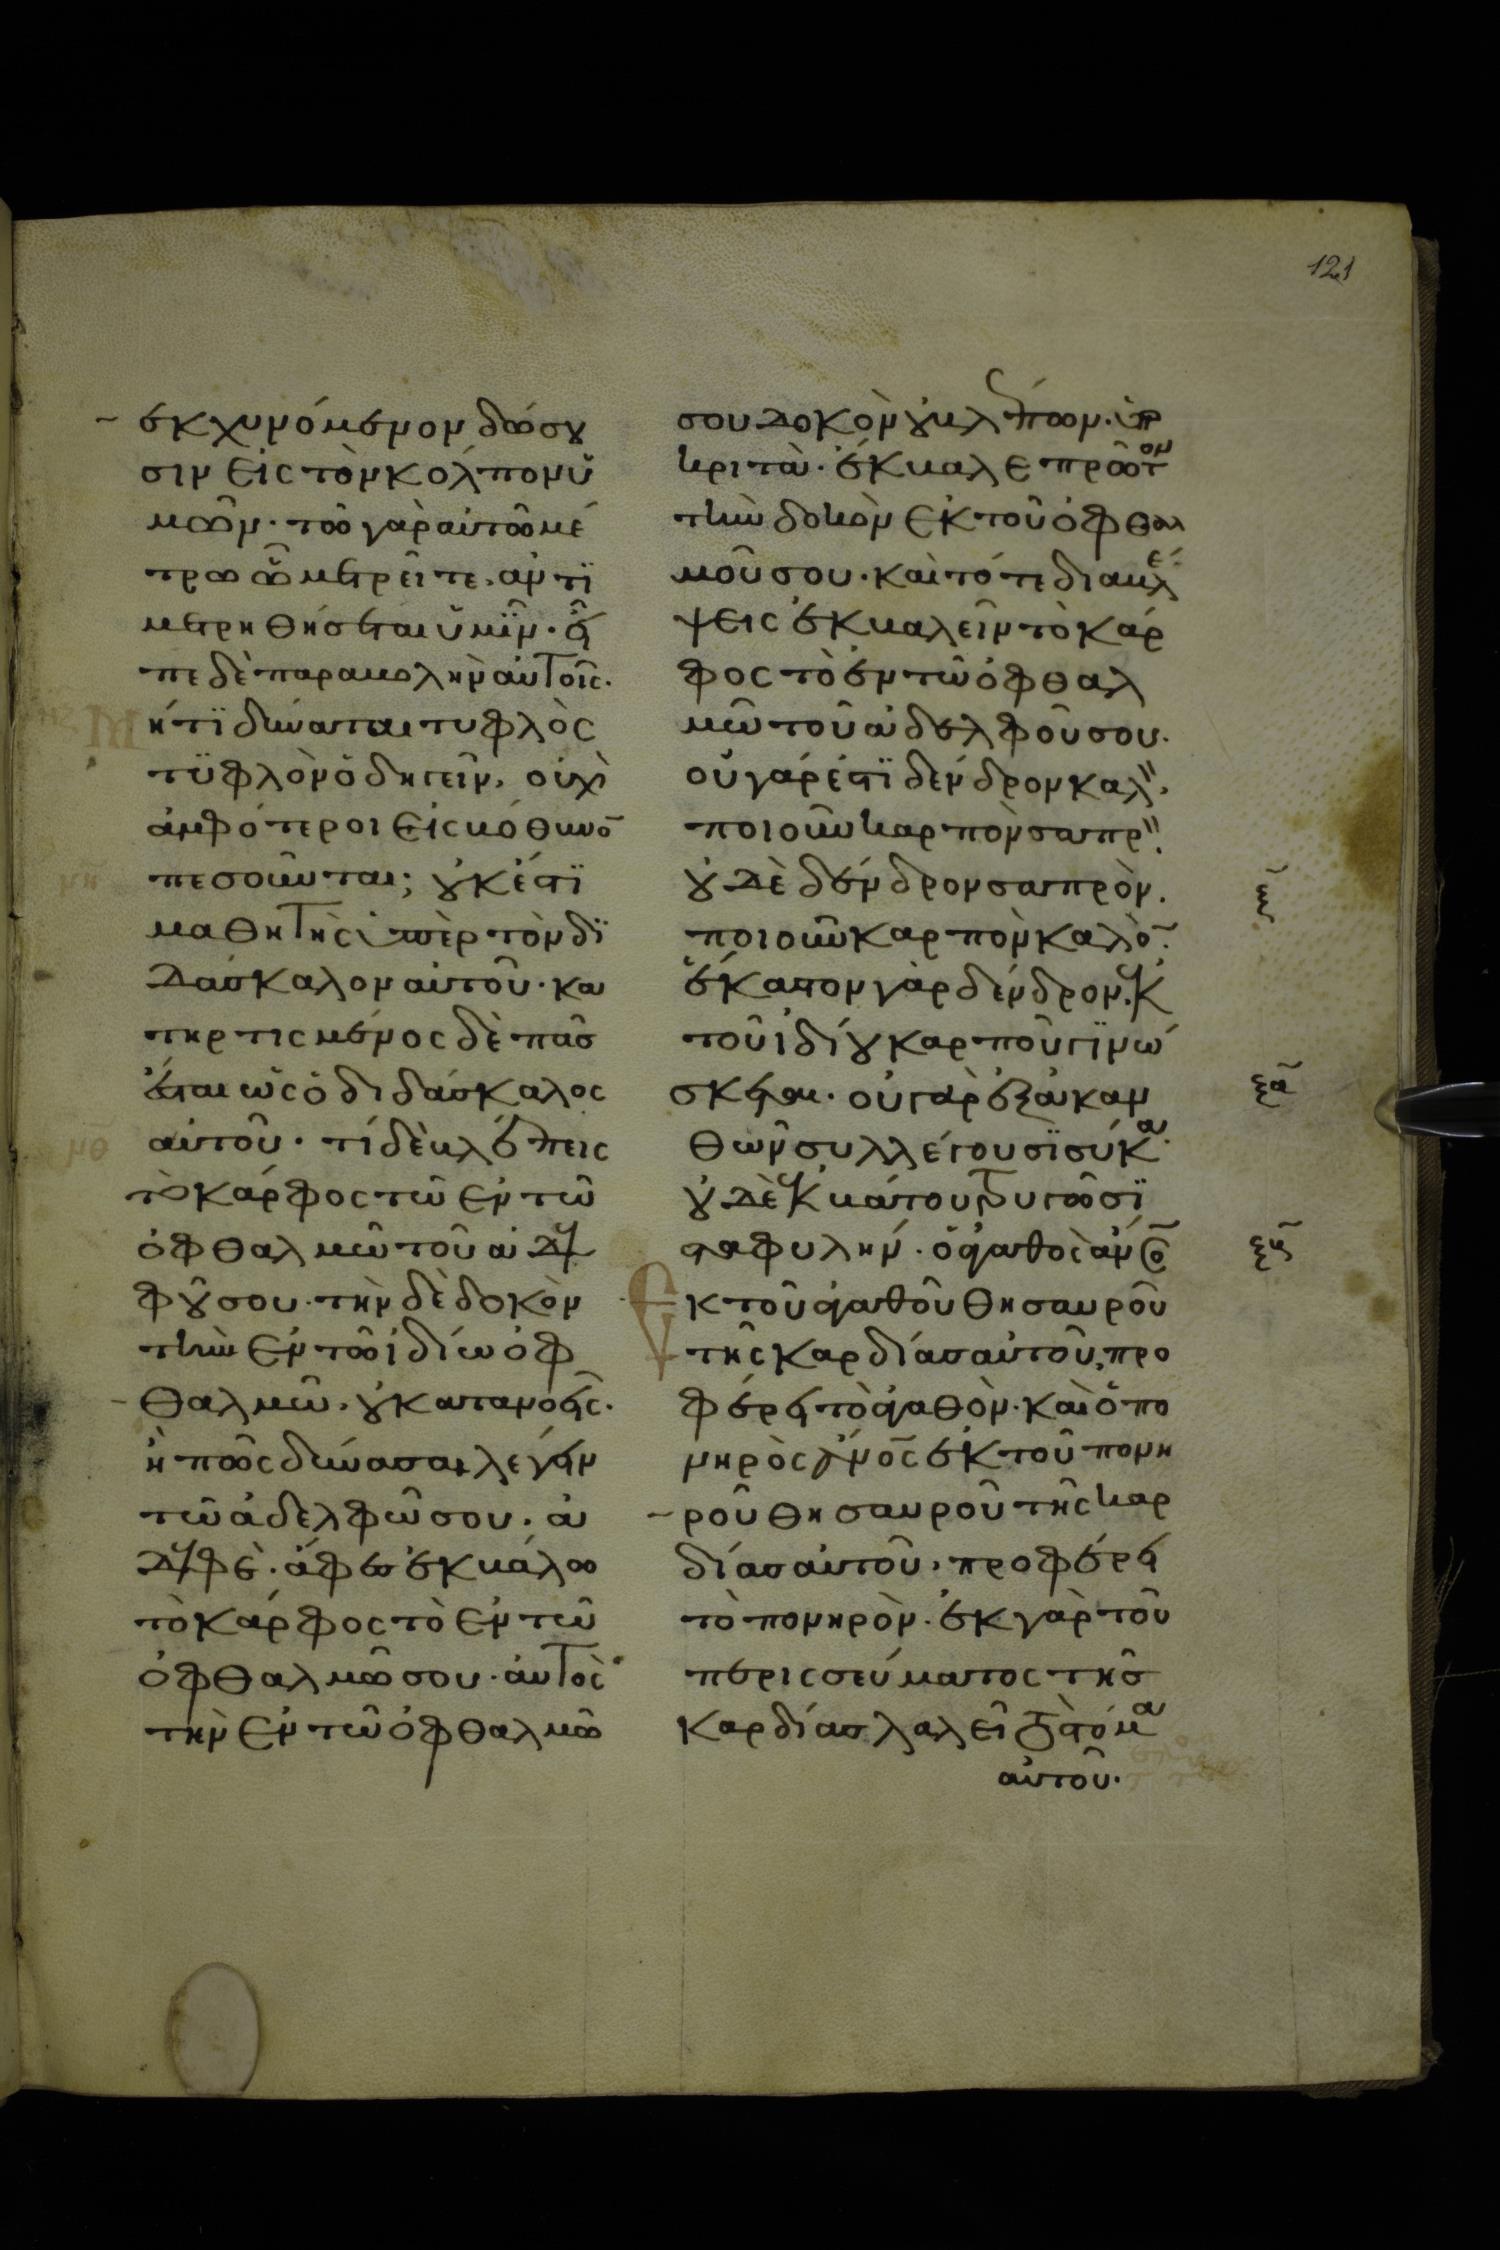 121
εκχυνόμενον δώσου
σιν εἰς τὸν κόλπον ὑ
μῶν· τῶ γὰρ αὐτῶ μέ
τρω ὧ μετρεῖτε, ἀντϊ
μετρηθήσεται ὑμῖν· εἶ
πε δὲ παραβολὴν αὐτοῖς·
μήτϊ δύναται τυφλὸς
τϋφλὸν ὁδηγεῖν, οὐχὶ
ἀμφότεροι εἰς βόθυνο̄
πεσοῦνται; οὐκ έστϊ
μαθητὴς ὑπὲρ τὸν δϊ
δάσκαλον αὐτοῦ· κα
τηρτισμένος δὲ πᾶσ
ἔσται ὡς ὁ διδάσκαλος
αὐτοῦ· τί δὲ βλέπεις
τὸ κάρφος τῶ ἐν τῶ
ὀφθαλμῶ τοῦ ἀδελ
φοῦ σου· τὴν δὲ δοκὸν
τὴν ἐν τῶ ἰδίω ὀφ
θαλμῶ, οὐ κατανοεῖς·
ἢ πῶς δύνασαι λέγειν
τῶ ἀδελφῶ σου· ἀ
δελφὲ· ἄφες ἐκβάλω
τὸ κάρφος τὸ ἐν τῶ
ὀφθαλμῶ σου· αὐτὸς
τὴν ἐν τῶ ὀφθαλμῶ
σου δοκὸν οὐ βλέπων· ὑπο
κριτὰ· ἔκβαλε πρῶτον
τὴν δοκὸν ἐκ τοῦ ὀφθαλ
μοῦ σου· καὶ τότε διαβλέ
ψεις ἐκβαλεῖν τὸ κάρ
φος τὸ ἐν τῶ ὀφθαλ
μῶ τοῦ ἀδελφοῦ σου·
οὐ γάρ ἐστϊ δένδρον καλὸν,
ποιοῦν καρπὸν σαπρὸν.
οὐδὲ δένδρον σαπρὸν.
ποιοῦν καρπὸν καλὸ̄.
ἕκαστον γὰρ δένδρον. ἐκ
τοῦ ἰδίου καρποῦ γϊνώ
σκεται. οὐ γὰρ ἐξ ἀκαν
θῶν συλλέγουσϊ σύκα.
οὐδὲ ἐκ βάτου τρυγῶσϊ
σταφυλήν. ὁ ἀγαθὸς ἄνο̄ς
ἐκ τοῦ ἀγαθοῦ θησαυροῦ
τῆς καρδίασ αὐτοῦ, προ
φέρει τὸ ἀγαθὸν· καὶ ὁ πο
νηρὸς ἄνο̄ς ἐκ τοῦ πονη
ροῦ θησαυροῦ τῆς καρ
δίασ αὐτοῦ, προφέρει
τὸ πονηρὸν. ἐκ γὰρ τοῦ
περισσεύματος τῆσ
καρδίασ λαλεῖ τὸ στόμα
αὐτοῦ·
μη̄
μθ̄
ξ̄
ξᾱ
ξβ̄